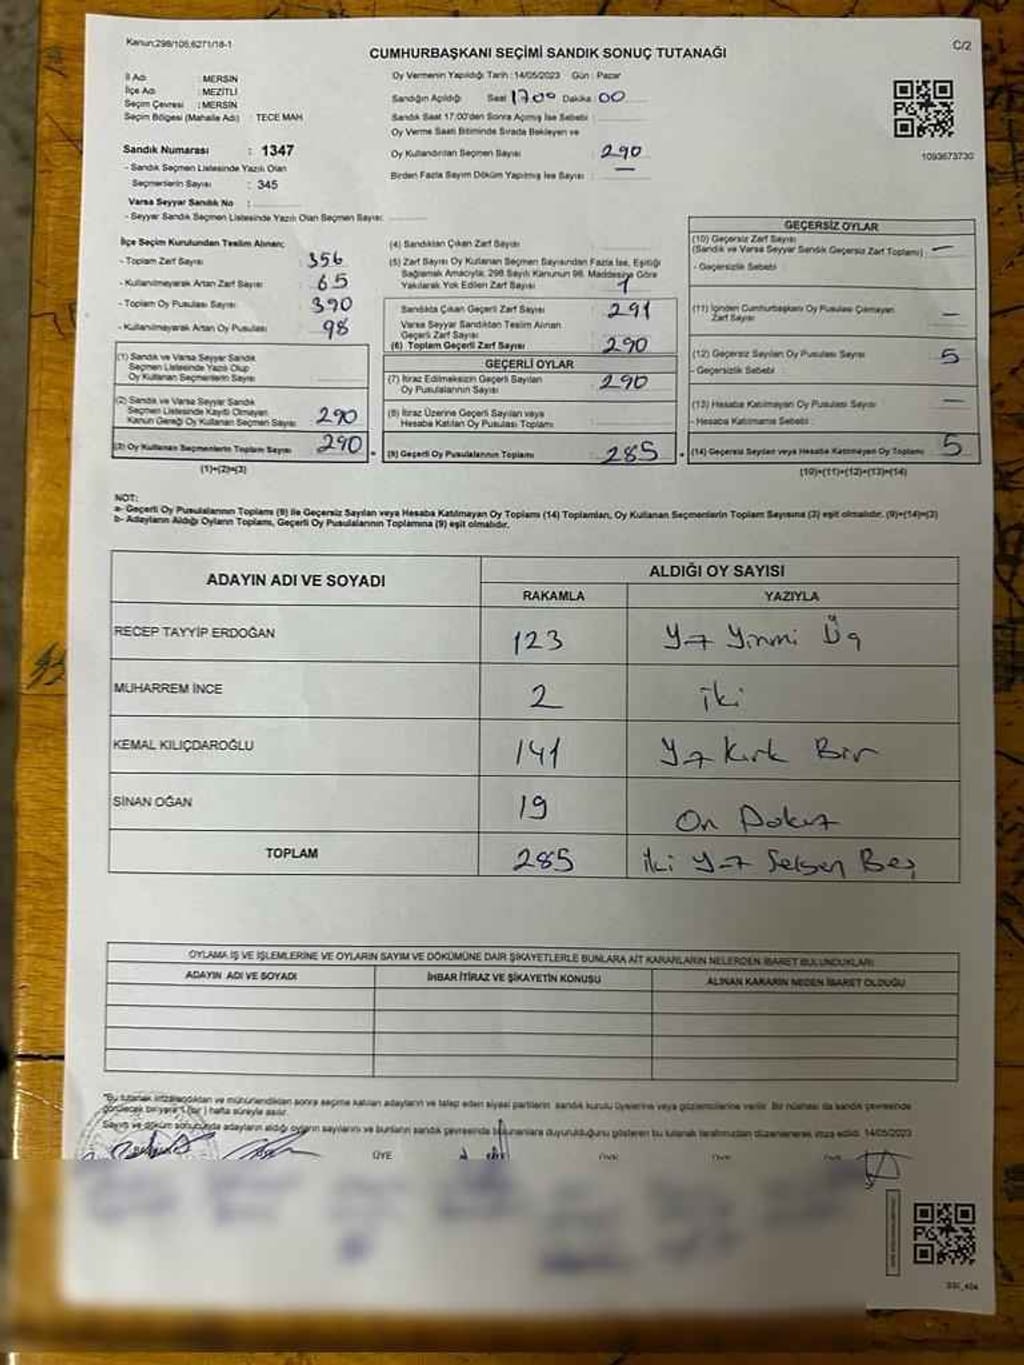 Kanun;298/105,6271/18-1
C/2
CUMHURBAŞKANI SEÇİMİ SANDIK SONUÇ TUTANAĞI
İl Adı : MERSİN
İlçe Adı : MEZİTLİ
Seçim Çevresi : MERSİN
Seçim Bölgesi (Mahalle Adı) : TECE MAH
Oy Vermenin Yapıldığı Tarih : 14/05/2023 Gün : Pazar
Sandığın Açıldığı Saat 17.00 Dakika 00
Sandık Saat 17:00'den Sonra Açılmış İse Sebebi :
Oy Verme Saati Bitiminde Sırada Bekleyen ve
Oy Kullandırılan Seçmen Sayısı : 290
Birden Fazla Sayım Döküm Yapılmış İse Sayısı : —
1093673730
Sandık Numarası : 1347
- Sandık Seçmen Listesinde Yazılı Olan
Seçmenlerin Sayısı : 345
Varsa Seyyar Sandık No :
- Seyyar Sandık Seçmen Listesinde Yazılı Olan Seçmen Sayısı:
İlçe Seçim Kurulundan Teslim Alınan;
- Toplam Zarf Sayısı : 356
- Kullanılmayarak Artan Zarf Sayısı : 65
- Toplam Oy Pusulası Sayısı : 390
- Kullanılmayarak Artan Oy Pusulası : 98
(1) Sandık ve Varsa Seyyar Sandık
Seçmen Listesinde Yazılı Olup
Oy Kullanan Seçmenlerin Sayısı
(2) Sandık ve Varsa Seyyar Sandık
Seçmen Listesinde Kayıtlı Olmayan
Kanun Gereği Oy Kullanan Seçmen Sayısı 290
(3) Oy Kullanan Seçmenlerin Toplam Sayısı 290
(1)+(2)=(3)
(4) Sandıktan Çıkan Zarf Sayısı
(5) Zarf Sayısı Oy Kullanan Seçmen Sayısından Fazla İse, Eşitliği
Sağlamak Amacıyla, 298 Sayılı Kanunun 98. Maddesine Göre
Yakılarak Yok Edilen Zarf Sayısı 1
Sandıkta Çıkan Geçerli Zarf Sayısı 291
Varsa Seyyar Sandıktan Teslim Alınan
Geçerli Zarf Sayısı
(6) Toplam Geçerli Zarf Sayısı 290
GEÇERLİ OYLAR
(7) İtiraz Edilmeksizin Geçerli Sayılan
Oy Pusulalarının Sayısı 290
(8) İtiraz Üzerine Geçerli Sayılan veya
Hesaba Katılan Oy Pusulası Toplamı
(9) Geçerli Oy Pusulalarının Toplamı 285
GEÇERSİZ OYLAR
(10) Geçersiz Zarf Sayısı
(Sandık ve Varsa Seyyar Sandık Geçersiz Zarf Toplamı) : —
- Geçersizlik Sebebi :
(11) İçinden Cumhurbaşkanı Oy Pusulası Çıkmayan
Zarf Sayısı —
(12) Geçersiz Sayılan Oy Pusulası Sayısı 5
- Geçersizlik Sebebi :
(13) Hesaba Katılmayan Oy Pusulası Sayısı —
- Hesaba Katılmama Sebebi :
(14) Geçersiz Sayılan veya Hesaba Katılmayan Oy Toplamı 5
(10)+(11)+(12)+(13)=(14)
NOT:
a- Geçerli Oy Pusulalarının Toplamı (9) ile Geçersiz Sayılan veya Hesaba Katılmayan Oy Toplamı (14) Toplamları, Oy Kullanan Seçmenlerin Toplam Sayısına (3) eşit olmalıdır. (9)+(14)=(3)
b- Adayların Aldığı Oyların Toplamı, Geçerli Oy Pusulalarının Toplamına (9) eşit olmalıdır.
ADAYIN ADI VE SOYADI
ALDIĞI OY SAYISI
RAKAMLA YAZIYLA
RECEP TAYYİP ERDOĞAN 123 Yz Yirmi Üç
MUHARREM İNCE 2 iki
KEMAL KILIÇDAROĞLU 141 Yz Kırk Bir
SİNAN OĞAN 19 On Dokuz
TOPLAM 285 iki Yz Seksen Beş
OYLAMA İŞ VE İŞLEMLERİNE VE OYLARIN SAYIM VE DÖKÜMÜNE DAİR ŞİKAYETLERLE BUNLARA AİT KARARLARIN NELERDEN İBARET BULUNDUKLARI
ADAYIN ADI VE SOYADI İHBAR İTİRAZ VE ŞİKAYETİN KONUSU ALINAN KARARIN NEDEN İBARET OLDUĞU
"Bu tutanak imzalandıktan ve mühürlendikten sonra seçime katılan adayların ve talep eden siyasi partilerin sandık kurulu üyelerine veya gözlemcilerine verilir. Bir nüshası da sandık çevresinde
görülecek bir yere 1 (bir) hafta süreyle asılır.
Sayım ve döküm sonucunda adayların aldığı oyların sayılarını ve bunların sandık çevresinde bulunanlara duyurulduğunu gösteren bu tutanak tarafımızdan düzenlenerek imza edildi. 14/05/2023
ÜYE